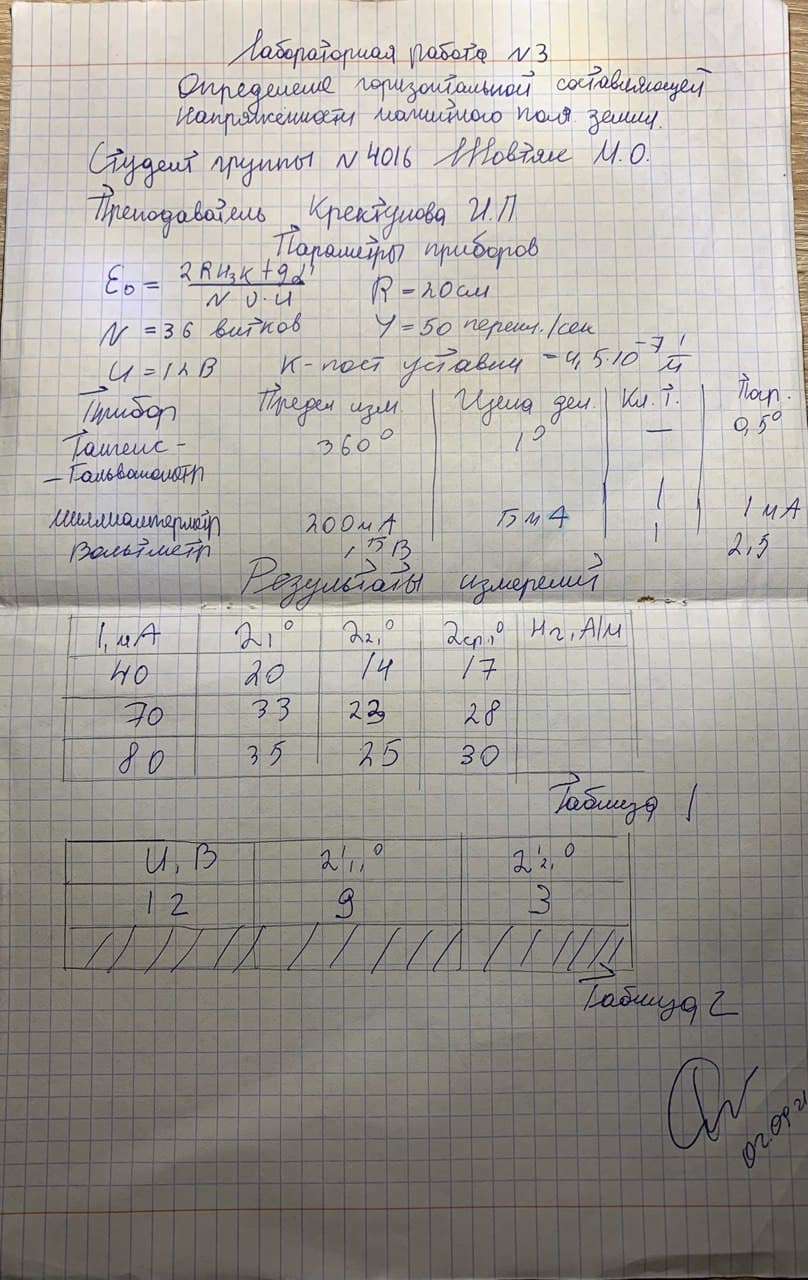 Лабораторная работа №3
Определение горизонтальной составляющей
напряженности магнитного поля земли.
Студент группы №4016 Жовтяк М.О.
Преподаватель Кректунова И.П.
Параметры приборов
ε₀ = 2RH₃K tgα' / N ν·U R = 20см
N = 36 витков γ = 50 перекл./сек
U = 12В К-пост установки = 4,5·10⁻⁷ 1/м
Прибор Предел изм. Цена дел. Кл. т. Погр.
Тангенс- 360° 1° — 0,5°
-Гальванометр
Миллиамперметр 200мА 5мА 1 1мА
Вольтметр 15В 1 2,5
Результаты измерений
I, мА α₁° α₂,° αср,° Hг, А/м
40 20 14 17
70 33 23 28
80 35 25 30
Таблица 1
U, В α'₁,° α'₂,°
12 9 3
Таблица 2